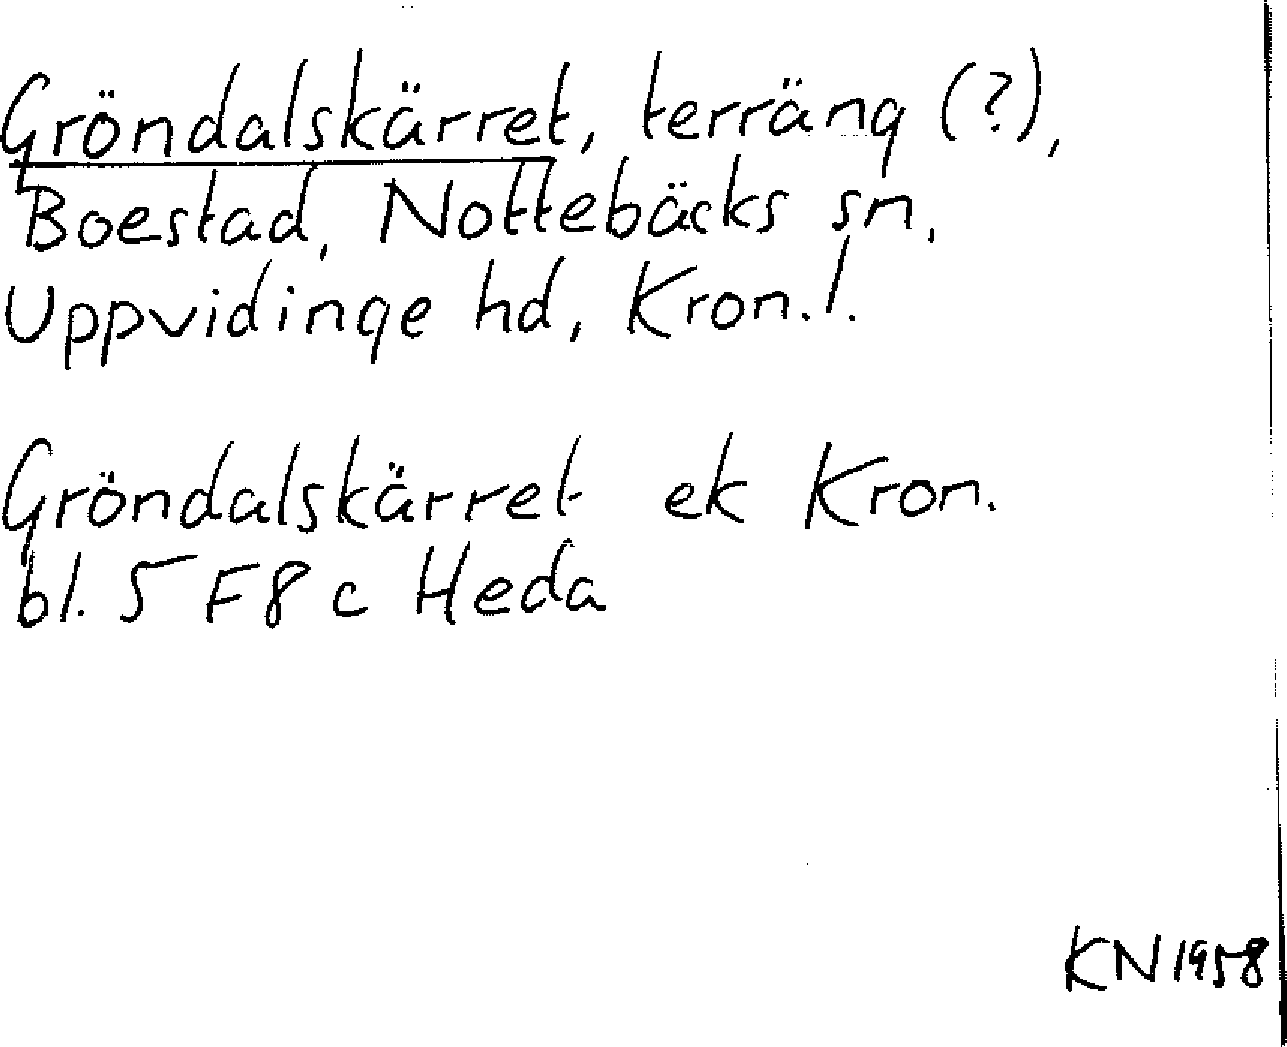 Gröndalskärret, terräng (?),
Boestad, Nottebäcks sn,
Uppvidinge hd, Kron.l.
Gröndalskärret ek Kron.
bl. 5 F 8 c Heda
KN 1958